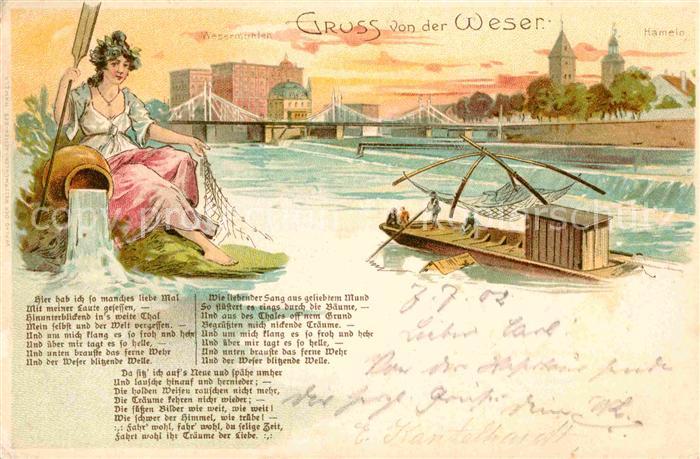 Gruss von der Weser.
Wesermühlen
Hameln
Hier hab ich so manches liebe Mal
Mit meiner Laute gesessen, —
Hinunterblickend in's weite Thal
Mein selbst und der Welt vergessen. —
Und um mich klang es so froh und hehr
Und über mir tagt es so helle, —
Und unten brauste das ferne Wehr
Und der Weser blitzende Welle.
Wie liebender Sang aus geliebtem Mund
So flüstert es rings durch die Bäume,
Und aus des Thales off'nem Grund
Begrüßten mich nickende Träume. —
Und um mich klang es so froh und hehr
Und über mir tagt es so helle,
Und unten brauste das ferne Wehr
Und der Weser blitzende Welle.
Da sitz' ich auf's Neue und spähe umher
Und lausche hinauf und hernieder; —
Die holden Weisen rauschen nicht mehr,
Die Träume kehren nicht wieder; —
Die süßen Bilder wie weit, wie weit!
Wie schwer der Himmel, wie trübe! —
:,: Fahr' wohl, fahr' wohl, du selige Zeit,
Fahrt wohl ihr Träume der Liebe. :,:
7.7.02
Lieber Carl!
E. Kantelhardt